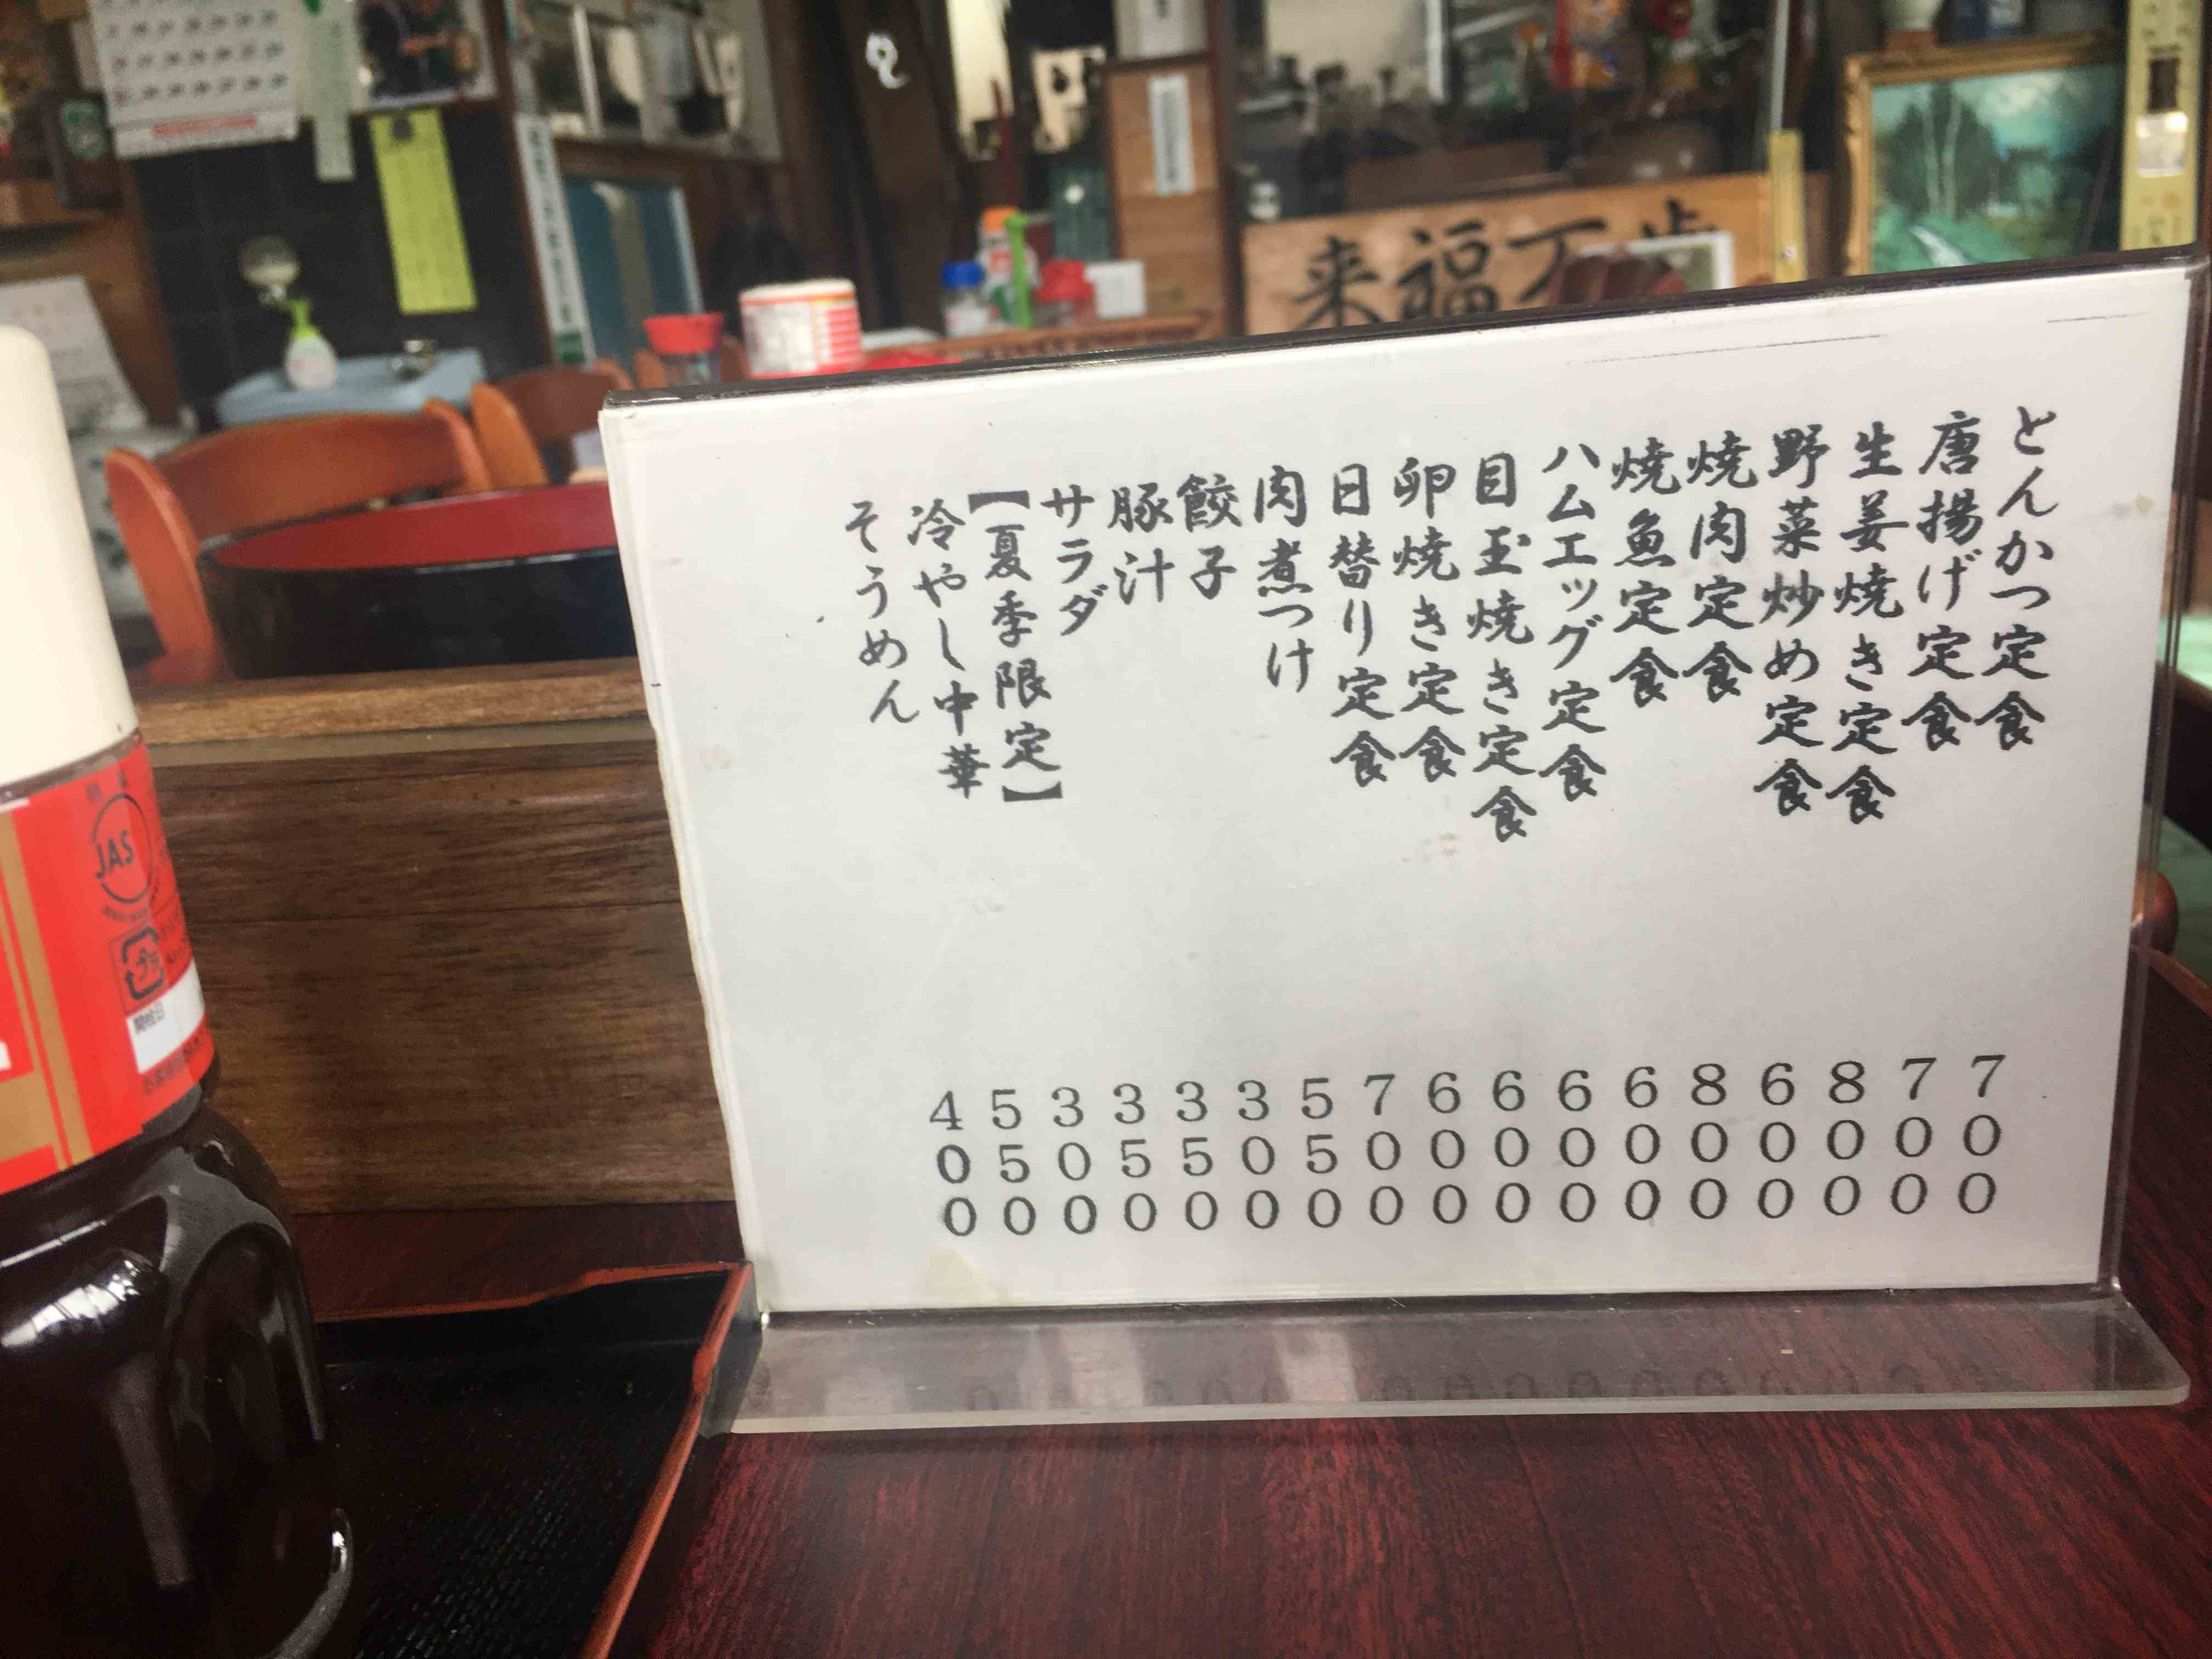 とんかつ定食
唐揚げ定食
生姜焼き定食
野菜炒め定食
焼肉定食
焼魚定食
ハムエッグ定食
目玉焼き定食
卵焼き定食
日替り定食
肉煮つけ
餃子
豚汁
サラダ
【夏季限定】
冷やし中華
そうめん
700
700
800
600
800
600
600
600
600
700
550
300
350
350
300
550
400
来福
JAS
開栓日